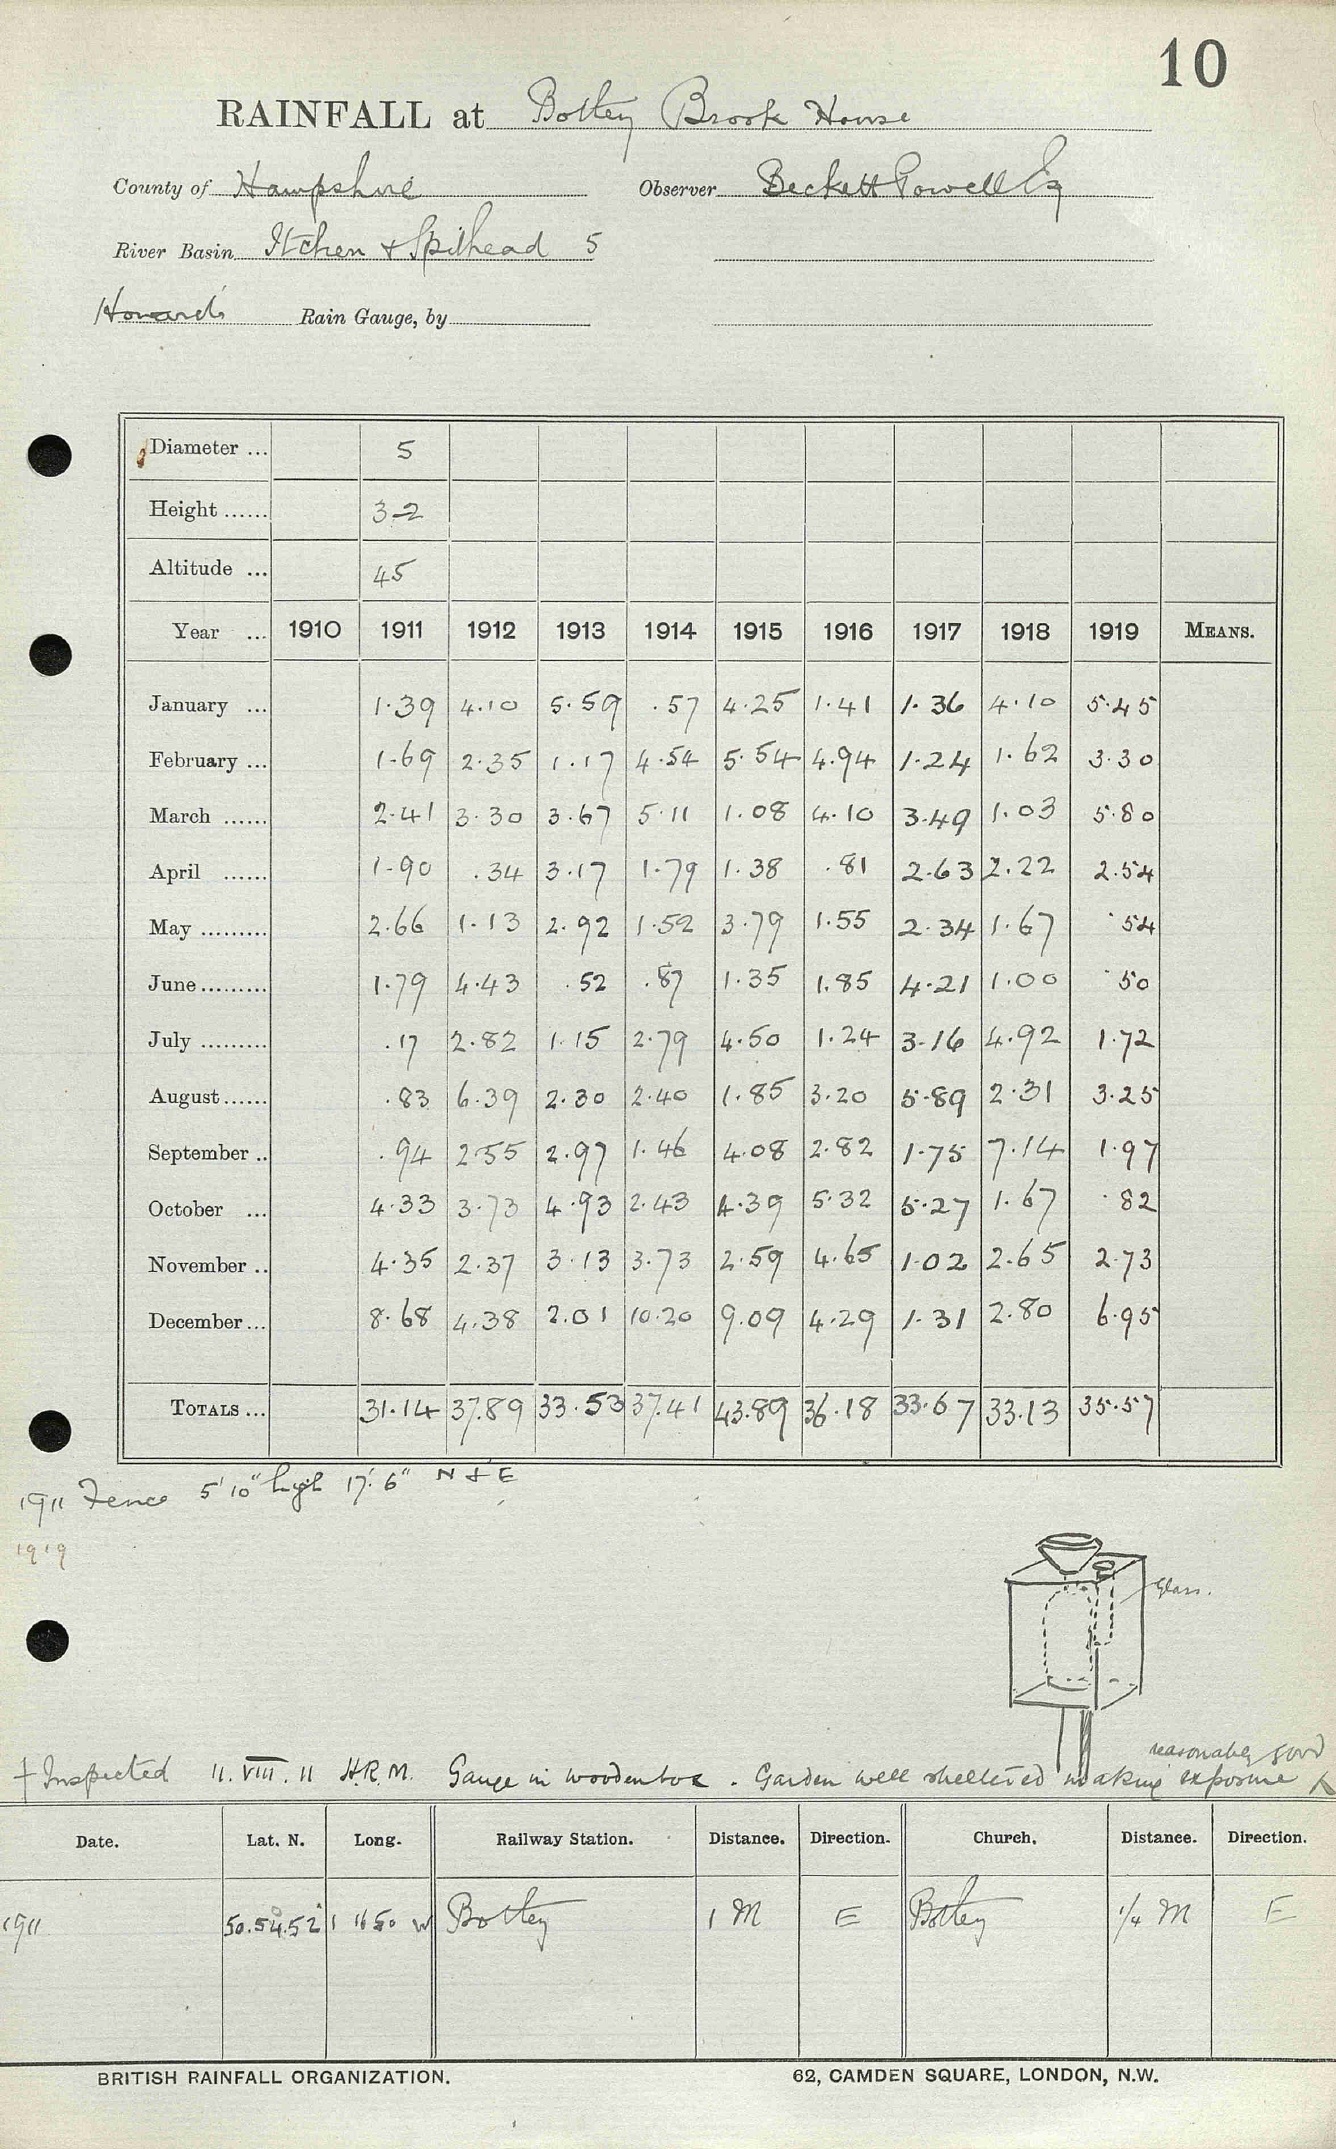 10
RAINFALL at Botley Brook House
County of Hampshire Observer Beckett Powell Esq
River Basin Itchen & Spithead 5
Howard's Rain Gauge, by
Diameter ... 5
Height ...... 3-2
Altitude ... 45
Year ... 1910 1911 1912 1913 1914 1915 1916 1917 1918 1919 MEANS.
January ... 1.39 4.10 5.59 .57 4.25 1.41 1.36 4.10 5.45
February ... 1.69 2.35 1.17 4.54 5.54 4.94 1.24 1.62 3.30
March ...... 2.41 3.30 3.67 5.11 1.08 4.10 3.49 1.03 5.80
April ...... 1.90 .34 3.17 1.79 1.38 .81 2.63 2.22 2.54
May ......... 2.66 1.13 2.92 1.52 3.79 1.55 2.34 1.67 .54
June ......... 1.79 4.43 .52 .87 1.35 1.85 4.21 1.00 .50
July ......... .17 2.82 1.15 2.79 4.50 1.24 3.16 4.92 1.72
August ...... .83 6.39 2.30 2.40 1.85 3.20 5.89 2.31 3.25
September .. .94 2.55 2.97 1.46 4.08 2.82 1.75 7.14 1.97
October ... 4.33 3.73 4.93 2.43 4.39 5.32 5.27 1.67 .82
November .. 4.35 2.37 3.13 3.73 2.59 4.65 1.02 2.65 2.73
December ... 8.68 4.38 2.01 10.20 9.09 4.29 1.31 2.80 6.95
TOTALS ... 31.14 37.89 33.53 37.41 43.89 36.18 33.67 33.13 35.57
1911 Fence 5'10" high 17'.6" N & E
1919
Glass.
† Inspected 11.VIII.11 H.R.M. Gauge in wooden box. Garden well sheltered making exposure reasonably good
Date. Lat. N. Long. Railway Station. Distance. Direction. Church. Distance. Direction.
1911 50.54.52 1 16 50 W Botley 1 M E Botley 1/4 M E
BRITISH RAINFALL ORGANIZATION. 62, CAMDEN SQUARE, LONDON, N.W.